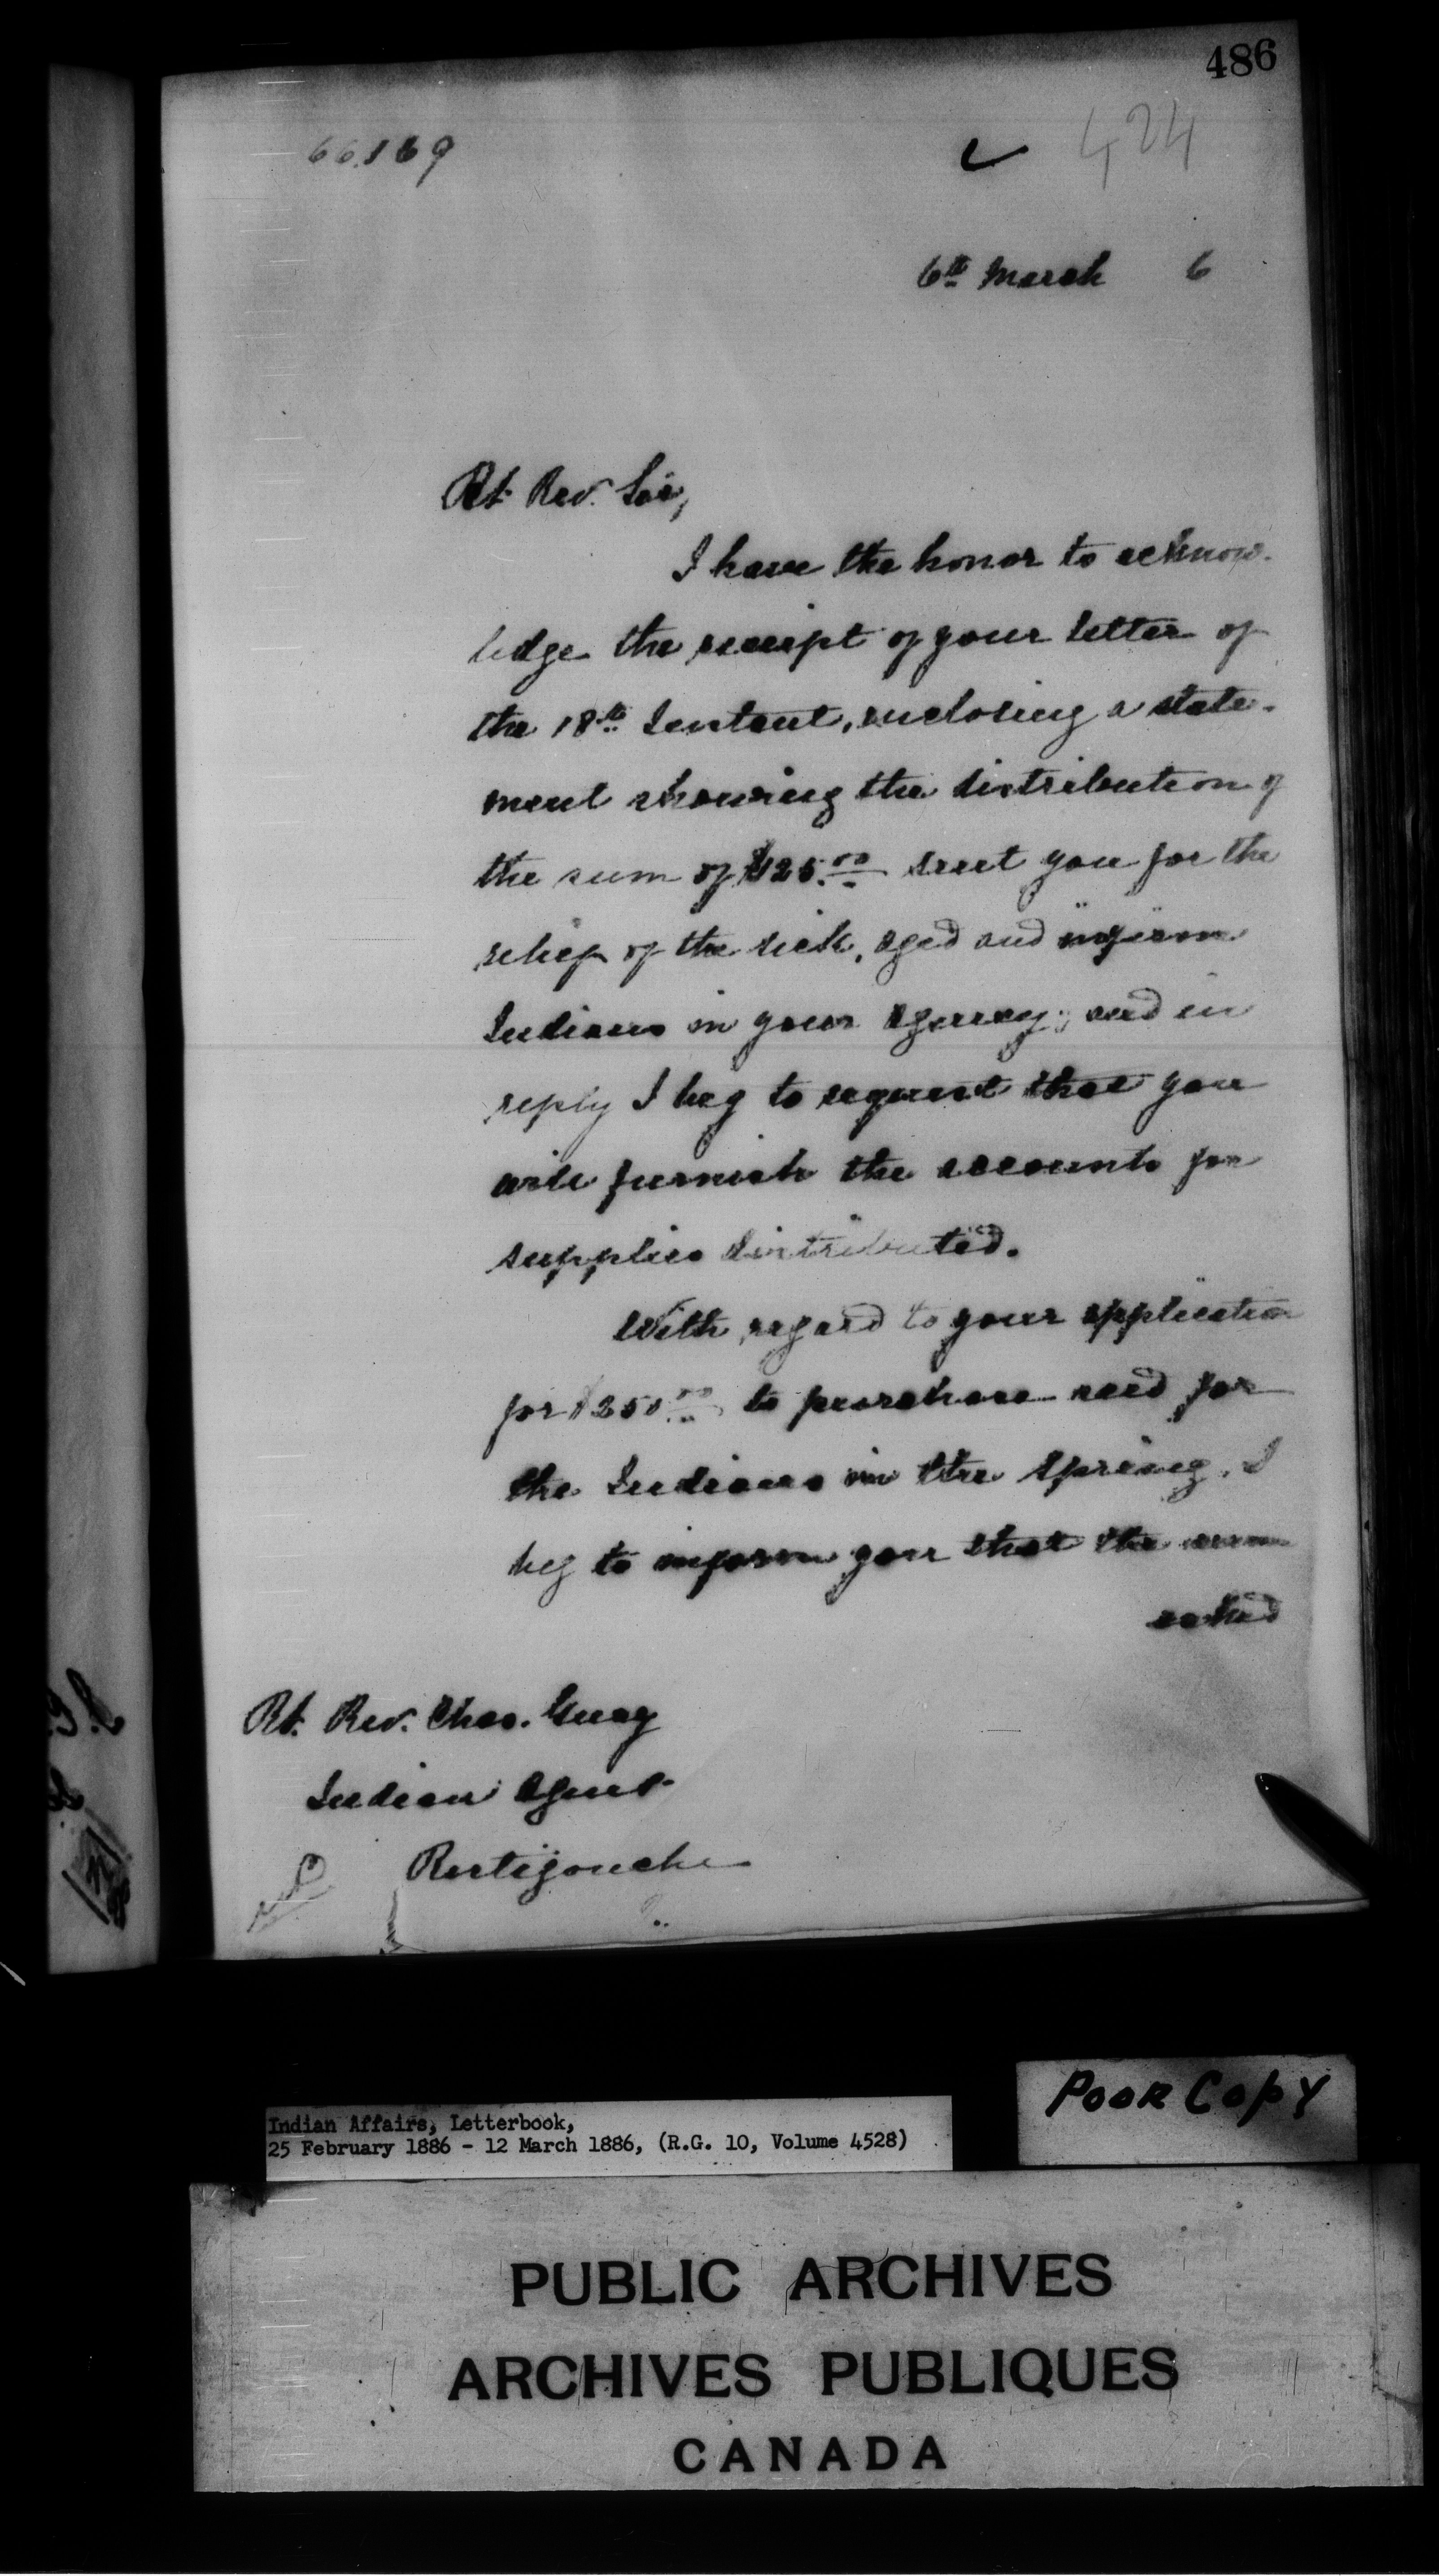 486
66.169
424
6th March 6
Rt. Rev. Sir,
I have the honor to acknow-
ledge the receipt of your letter of
the 18th Instant, enclosing a state-
ment showing the distribution of
the sum of $125.00 sent you for the
relief of the sick, aged and infirm
Indians in your Agency; and in
reply I beg to request that you
will furnish the accounts for
supplies distributed.
With regard to your application
for $250.00 to purchase seed for
the Indians in the Spring, I
beg to inform you that the sum
asked
Rt. Rev. Chas. Guay
Indian Agent
Restigouche
POOR COPY
Indian Affairs, Letterbook,
25 February 1886 - 12 March 1886, (R.G. 10, Volume 4528)
PUBLIC ARCHIVES
ARCHIVES PUBLIQUES
CANADA